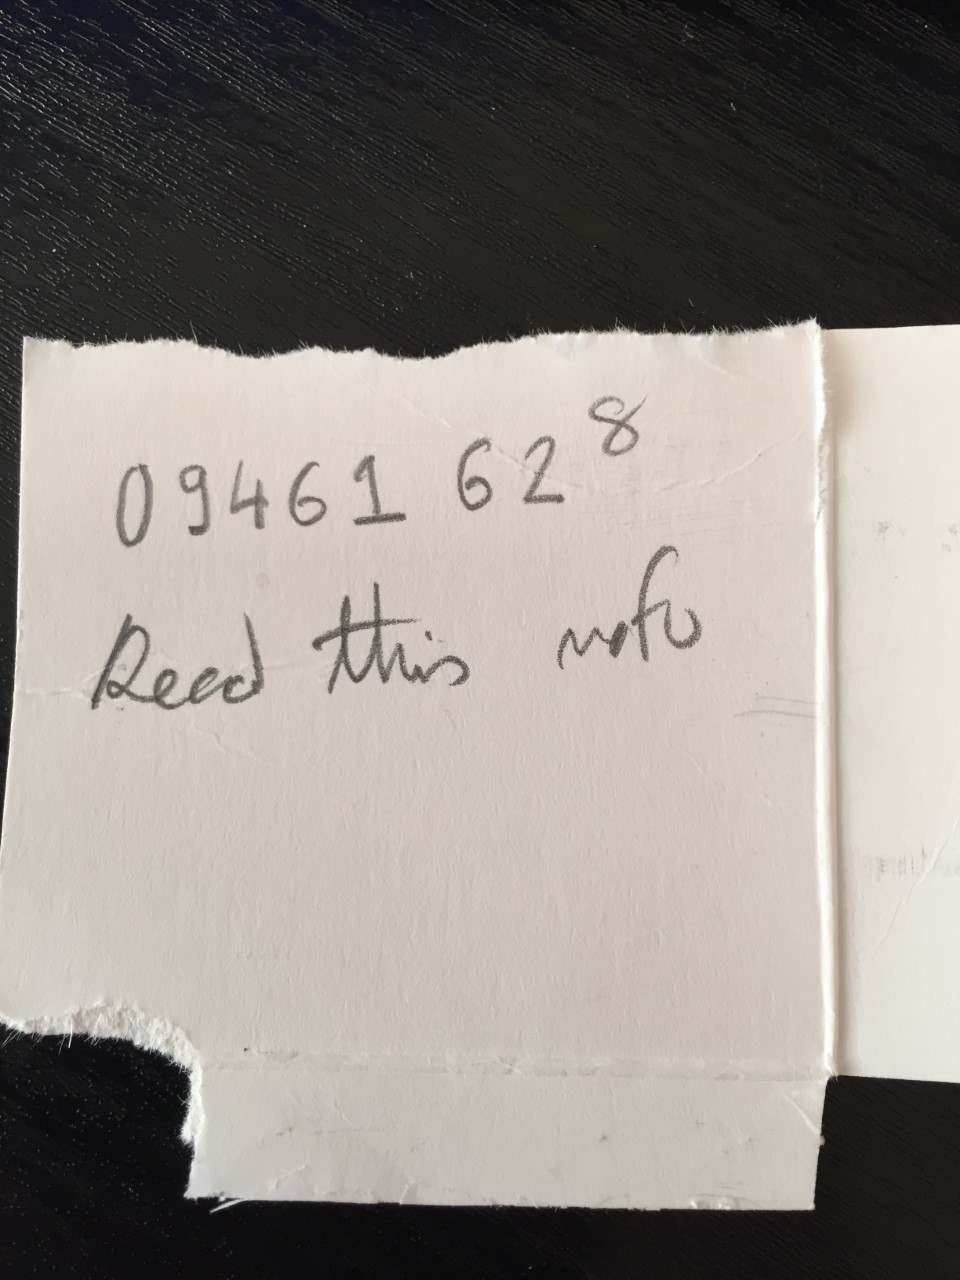 09461 628
Read this note